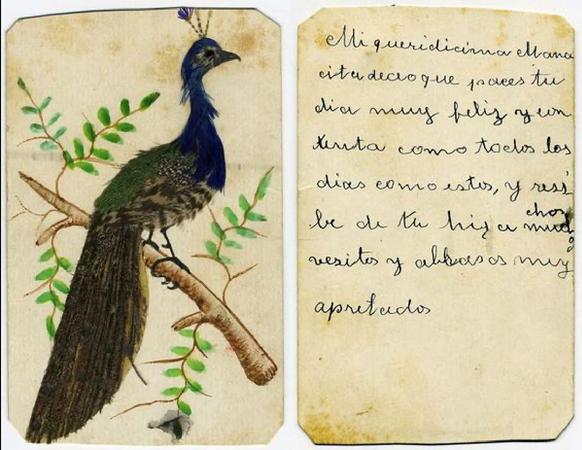 Mi queridicima Mama
cita deceo que paces tu
dia muy feliz y con
tenta como todos los
dias como estos, y resi
be de tu hija muchos
vesitos y abrasos muy
apretados